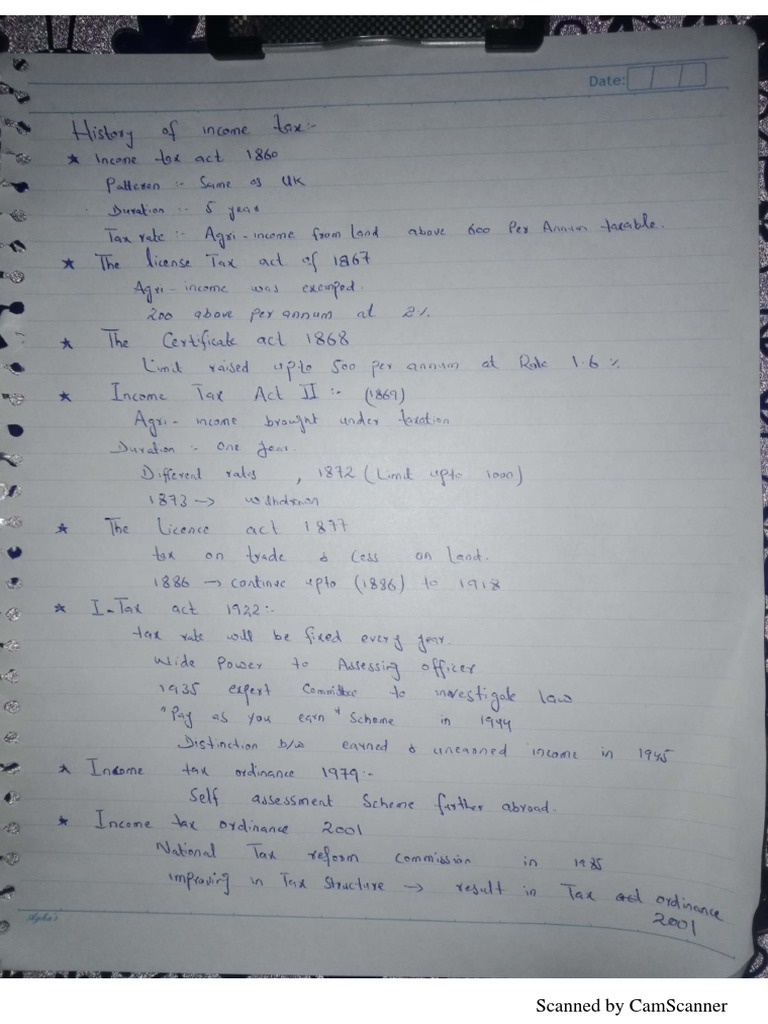 Date:
History of income tax:-
★ Income tax act 1860
Patteren :- Same as UK
Duration :- 5 year
Tax rate :- Agri-income from land above 600 Per Annum taxable.
★ The license Tax act of 1867
Agri-income was exemped.
200 above per annum at 2%.
★ The Certificate act 1868
Limit raised upto 500 per annum at Rate 1.6 %
★ Income Tax Act II :- (1869)
Agri-income brought under taxation
Duration :- one year.
Different rates , 1872 (Limit upto 1000)
1873 → withdrawn
★ The Licence act 1877
tax on trade & cess on land.
1886 → continue upto (1886) to 1918
★ I-Tax act 1922:-
tax rate will be fixed every year.
Wide Power to Assessing officer
1935 expert Committee to investigate law
"Pay as you earn" Scheme in 1944
Distinction b/w earned & unearned income in 1945
★ Income tax ordinance 1979:-
Self assessment Scheme further abroad.
★ Income tax ordinance 2001
National Tax reform Commission in 1985
Improving in Tax Structure → result in Tax ordinance
2001
Scanned by CamScanner